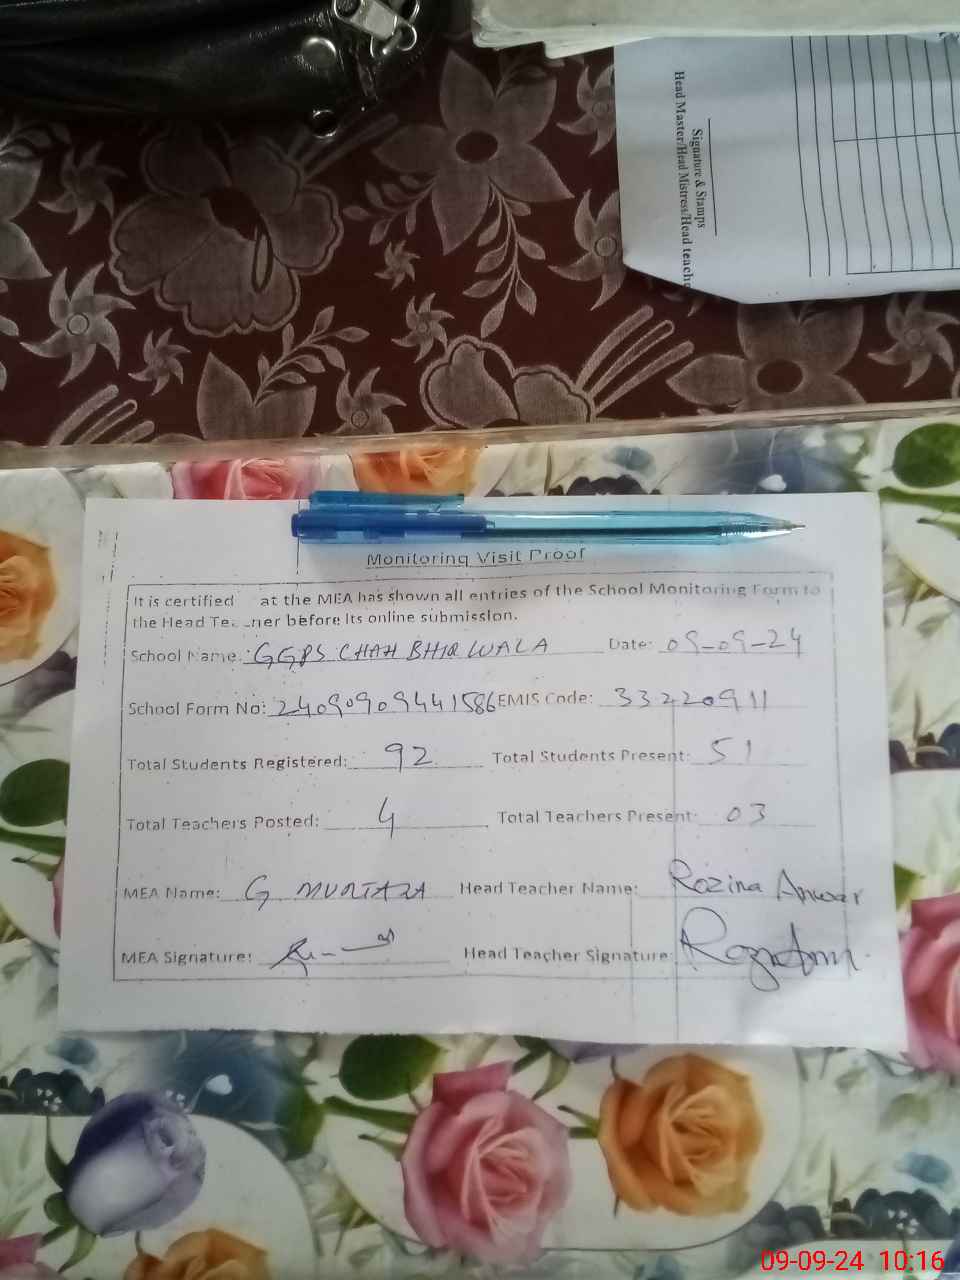 Signature & Stamps
Head Master/Head Mistress/Head teache
Monitoring Visit Proof
It is certified at the MEA has shown all entries of the School Monitoring Form to
the Head Teacher before its online submission.
School Name: GGPS CHAH BHIR WALA Date: 09-09-24
School Form No: 2409090944 1586 EMIS Code: 33220911
Total Students Registered: 92 Total Students Present: 51
Total Teachers Posted: 4 Total Teachers Present: 03
MEA Name: G MURTAZA Head Teacher Name: Rozina Anwar
MEA Signature: Head Teacher Signature:
09-09-24 10:16